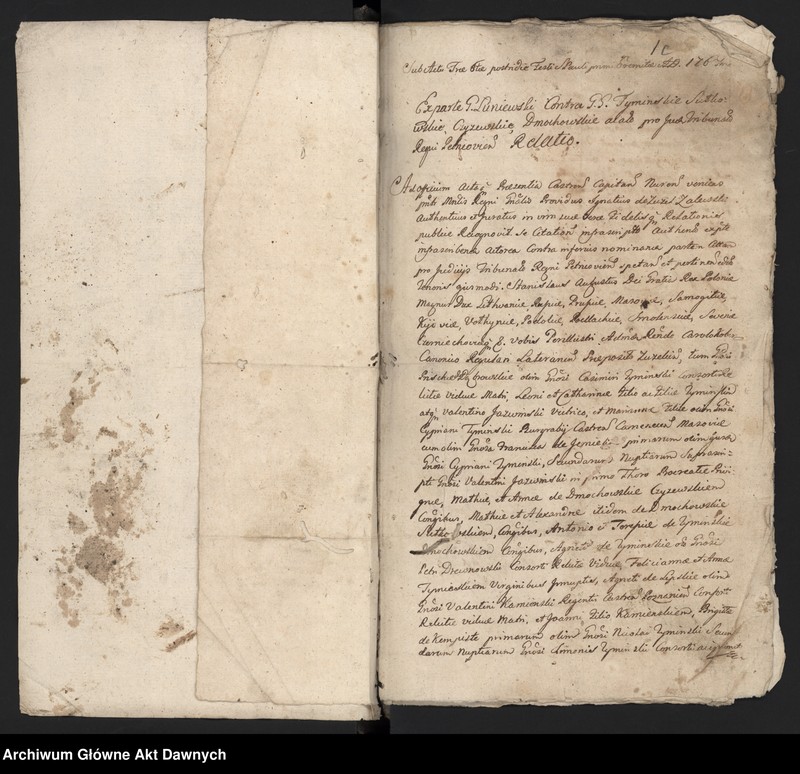 1c
Sub Actu Feriae 6tae postridie Festi S. Pauli primi Eremitae AD. 176
Ex parte G. Łuniewski Contra G.G. Tyminskie Sutko-
wskie, Czyzewskie, Dmochowskie alios pro Jud. Tribunal.
Regni Petricovien. Relatio.
Ad officium Actaq. Praesentia Castren. Capitan. Nuren. veniens
Mntis Regni Gnalis Providus Ignatius de Zuzel Zalewski
Authenticus et juratus in vim suae verae Fidelisq. Relationis
publice Recognovit. Se Citation. infrascript. Authen. ex pte
infrascriben. Actorea Contra inferius nominan. partem
pro Judicijs Tribunal. Regni Petricovien. spectan. et pertinen. edit.
Tenoris ejusmodi. Stanislaus Augustus Dei Gratia Rex Poloniae
Magnus Dux Lithvaniae Russiae, Prussiae, Masoviae, Samogitiae,
Kijoviae, Volhyniae, Podoliae, Podlachiae, Smolensciae, Severiae
Czerniechoviaeq. E. vobis Perillustri Admo Rendo Carolo
Canonico Regulari Lateranen. Praeposito Zuzelien. tum Gnosi
olim Gnosi Casimiri Tyminski Consorti Re-
lictae viduae Matri, Leoni et Catharinae Filio ac Filiae Tyminskim
atq. Valentino Jazwinski Vitrico, et Mariannae Filiae olim Gnosi
Cypriani Tyminski Burgrabij Castren. Camenecen. Masoviae
cum olim Gnosa Francisca de primarum olim
Gnosi Cypriani Tyminski, Secundarum Nuptiarum Suprascri-
pti Gnosi Valentini Jazwinski in primo Thoro Procreatae Privi-
gnae, Mathiae, et Annae de Dmochowskie Czyzewskien
Conjgibus, Mathiae et Alexandrae itidem de Dmochowskie
Sutkowskien, Conjgibus, Antonio et Teresiae de Tyminskie
Dmochowskien Conjgibus, Agneti de Tyminskie olim Gnosi
Petri Drewnowski Consorti Relictae Viduae, Feliciannae et Annae
Tyminskiem Virginibus Innuptis, Agneti de Lipskie olim
Gnosi Valentini Kamienski Regentis Castren. Rozanien. Consorti
Relictae viduae Matri, et Joanni Filio Kamienskien, Brigittae
de Kempiste primarum olim Gnosi Nicolai Tyminski Secun-
darum Nuptiarum Gnosi Simonis Tyminski Consorti